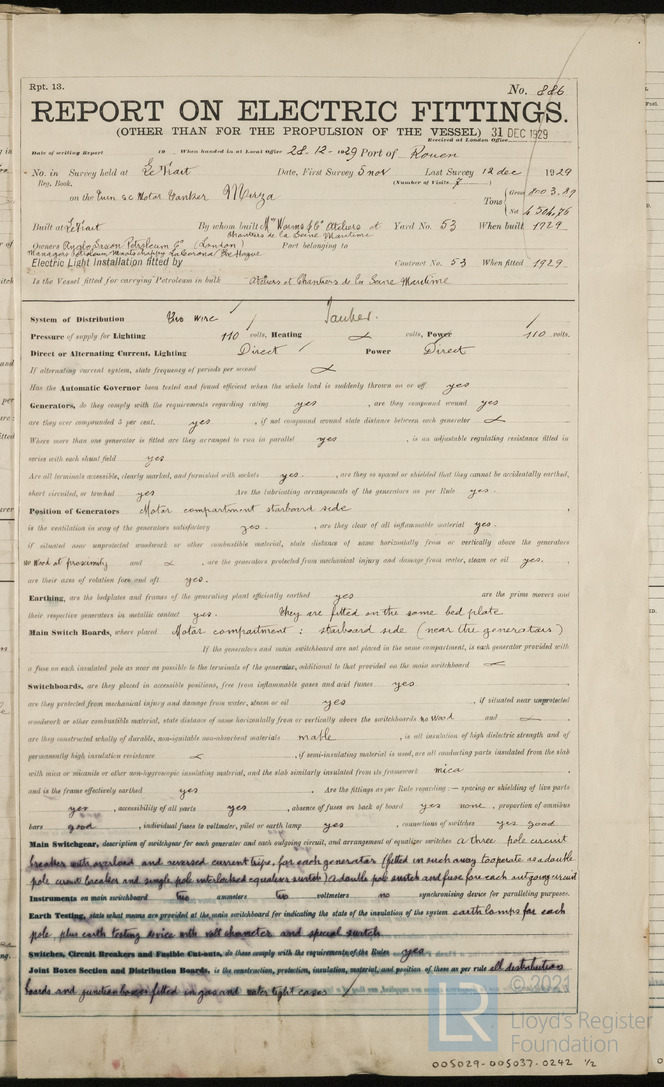 Rpt. 13.
No. 886
REPORT ON ELECTRIC FITTINGS.
(OTHER THAN FOR THE PROPULSION OF THE VESSEL) 31 DEC 1929
Received at London Office
Date of writing Report 19 When handed in at Local Office 28.12.1929 Port of Rouen
No. in Survey held at Le Trait Date, First Survey 5 nov Last Survey 12 dec 1929
Reg. Book. (Number of Visits 7)
on the Twin sc Motor Tanker Mirza Tons Gross 8003.89
Net 4504.76
Built at Le Trait By whom built Mrs Worms & Co Ateliers et Yard No. 53 When built 1929
Chantiers de la Seine Maritime
Owners Anglo Saxon Petroleum Co (London) Port belonging to
Managers Petroleum Maatschappy La Corona The Hague
Electric Light Installation fitted by Contract No. 53 When fitted 1929
Is the Vessel fitted for carrying Petroleum in bulk Ateliers et Chantiers de la Seine Maritime
System of Distribution Two wire Tanker.
Pressure of supply for Lighting 110 volts, Heating volts, Power 110 volts.
Direct or Alternating Current, Lighting Direct Power Direct
If alternating current system, state frequency of periods per second
Has the Automatic Governor been tested and found efficient when the whole load is suddenly thrown on or off yes
Generators, do they comply with the requirements regarding rating yes, are they compound wound yes
are they over compounded 5 per cent. yes, if not compound wound state distance between each generator
Where more than one generator is fitted are they arranged to run in parallel yes, is an adjustable regulating resistance fitted in
series with each shunt field yes
Are all terminals accessible, clearly marked, and furnished with sockets yes, are they so spaced or shielded that they cannot be accidentally earthed,
short circuited, or touched yes Are the lubricating arrangements of the generators as per Rule yes.
Position of Generators Motor compartment starboard side
is the ventilation in way of the generators satisfactory yes., are they clear of all inflammable material yes.
if situated near unprotected woodwork or other combustible material, state distance of same horizontally from or vertically above the generators
no Wood at proximity and , are the generators protected from mechanical injury and damage from water, steam or oil yes.
are their axes of rotation fore and aft yes.
Earthing, are the bedplates and frames of the generating plant efficiently earthed yes are the prime movers and
their respective generators in metallic contact yes. They are fitted on the same bed plate
Main Switch Boards, where placed Motor compartment : starboard side (near the generators)
If the generators and main switchboard are not placed in the same compartment, is each generator provided with
a fuse on each insulated pole as near as possible to the terminals of the generator, additional to that provided on the main switchboard
Switchboards, are they placed in accessible positions, free from inflammable gases and acid fumes yes
are they protected from mechanical injury and damage from water, steam or oil yes, if situated near unprotected
woodwork or other combustible material, state distance of same horizontally from or vertically above the switchboards no wood and
are they constructed wholly of durable, non-ignitable non-absorbent materials marble, is all insulation of high dielectric strength and of
permanently high insulation resistance , if semi-insulating material is used, are all conducting parts insulated from the slab
with mica or micanite or other non-hygroscopic insulating material, and the slab similarly insulated from its framework mica
and is the frame effectively earthed yes. Are the fittings as per Rule regarding :— spacing or shielding of live parts
yes, accessibility of all parts yes, absence of fuses on back of board yes none, proportion of omnibus
bars good, individual fuses to voltmeter, pilot or earth lamp yes, connections of switches yes good
Main Switchgear, description of switchgear for each generator and each outgoing circuit, and arrangement of equaliser switches a three pole circuit
breaker with overload and reversed current trips, for each generator (fitted in such a way to operate as a double
pole circuit breaker and single pole interlocked equaliser switch) a double pole switch and fuse for each outgoing circuit
Instruments on main switchboard two ammeters two voltmeters no synchronising device for paralleling purposes.
Earth Testing, state what means are provided at the main switchboard for indicating the state of the insulation of the system earth lamps for each
pole, plus earth testing device with and special switch
Switches, Circuit Breakers and Fusible Cut-outs, do these comply with the requirements of the Rules yes
Joint Boxes Section and Distribution Boards, is the construction, protection, insulation, material, and position of these as per rule all distribution
boards and junction boxes fitted in gas and water tight cases
© 2021
LR Lloyd's Register
Foundation
005029-005037-0242 1/2